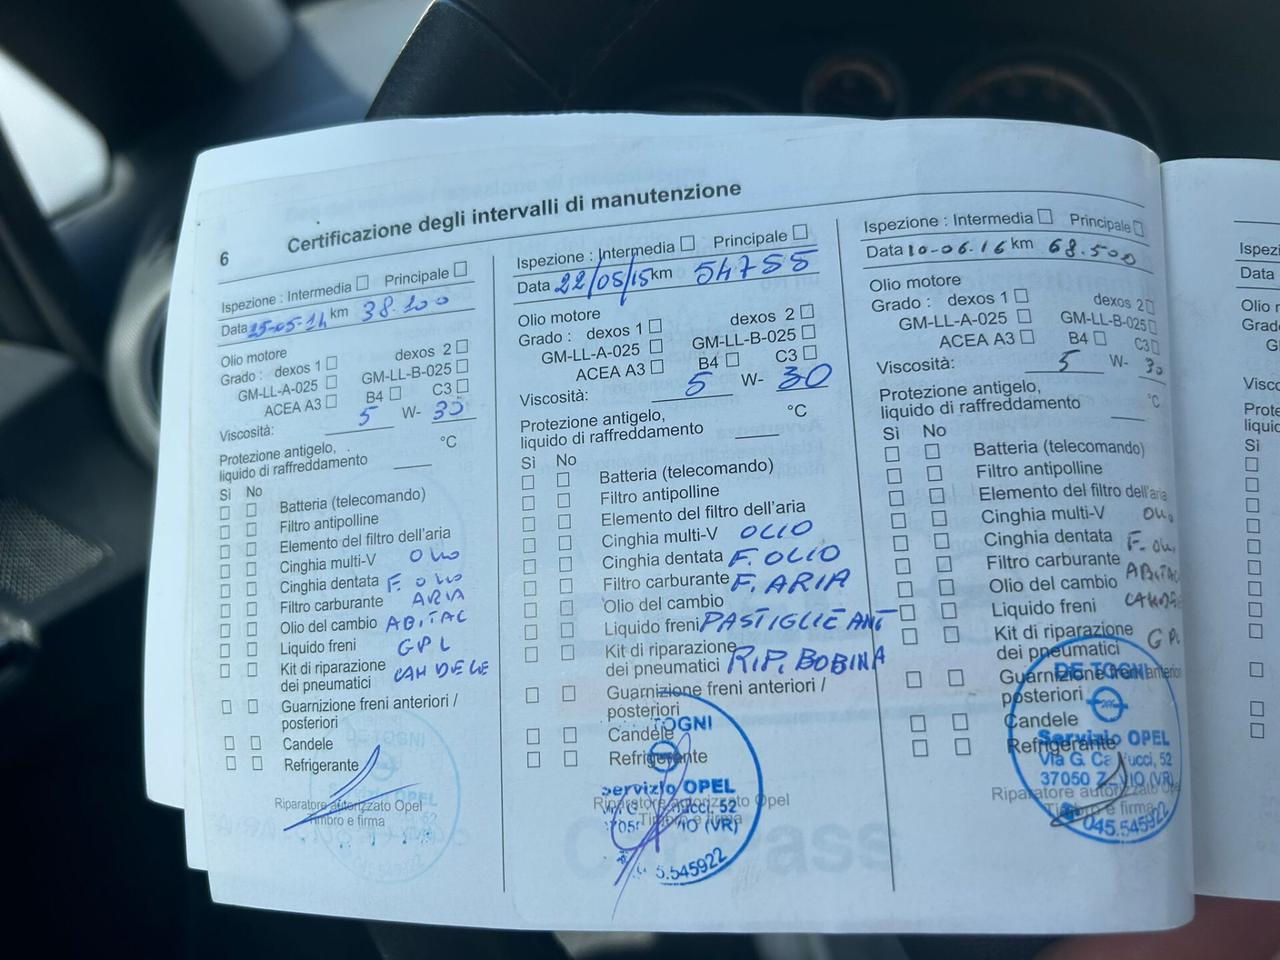 6 Certificazione degli intervalli di manutenzione
Ispezione : Intermedia Principale
Data 25-05-14 km 38.200
Olio motore
Grado : dexos 1 dexos 2
GM-LL-A-025 GM-LL-B-025
ACEA A3 B4 C3
Viscosità: 5 W- 30
Protezione antigelo,
liquido di raffreddamento °C
Sì No
Batteria (telecomando)
Filtro antipolline
Elemento del filtro dell'aria
Cinghia multi-V OLIO
Cinghia dentata F. OLIO
Filtro carburante ARIA
Olio del cambio ABITAC
Liquido freni GPL
Kit di riparazione CANDELE
dei pneumatici
Guarnizione freni anteriori /
posteriori
Candele
Refrigerante
Riparatore autorizzato Opel
Timbro e firma
Ispezione : Intermedia Principale
Data 22/05/15 km 54755
Olio motore
Grado : dexos 1 dexos 2
GM-LL-A-025 GM-LL-B-025
ACEA A3 B4 C3
Viscosità: 5 W- 30
Protezione antigelo,
liquido di raffreddamento °C
Sì No
Batteria (telecomando)
Filtro antipolline
Elemento del filtro dell'aria
Cinghia multi-V OLIO
Cinghia dentata F. OLIO
Filtro carburante F. ARIA
Olio del cambio
Liquido freni PASTIGLIE ANT
Kit di riparazione
dei pneumatici RIP. BOBINA
Guarnizione freni anteriori /
posteriori
Candele
Refrigerante
TOGNI
Servizio OPEL
Riparatore autorizzato Opel
Timbro e firma
52
(VR)
5.545922
Ispezione : Intermedia Principale
Data 10-06.16 km 68.500
Olio motore
Grado : dexos 1 dexos 2
GM-LL-A-025 GM-LL-B-025
ACEA A3 B4 C3
Viscosità: 5 W- 30
Protezione antigelo,
liquido di raffreddamento °C
Sì No
Batteria (telecomando)
Filtro antipolline
Elemento del filtro dell'aria
Cinghia multi-V
Cinghia dentata
Filtro carburante ABITAC
Olio del cambio
Liquido freni
Kit di riparazione GPL
dei pneumatici
Guarnizione freni anteriori
posteriori
Candele
Refrigerante
DE TOGNI
Servizio OPEL
Via G. 52
37050 (VR)
Riparatore autorizzato
Timbro e firma
045.545922
Ispezi
Data
Olio m
Grado
Visco
Prote
liquid
Sì